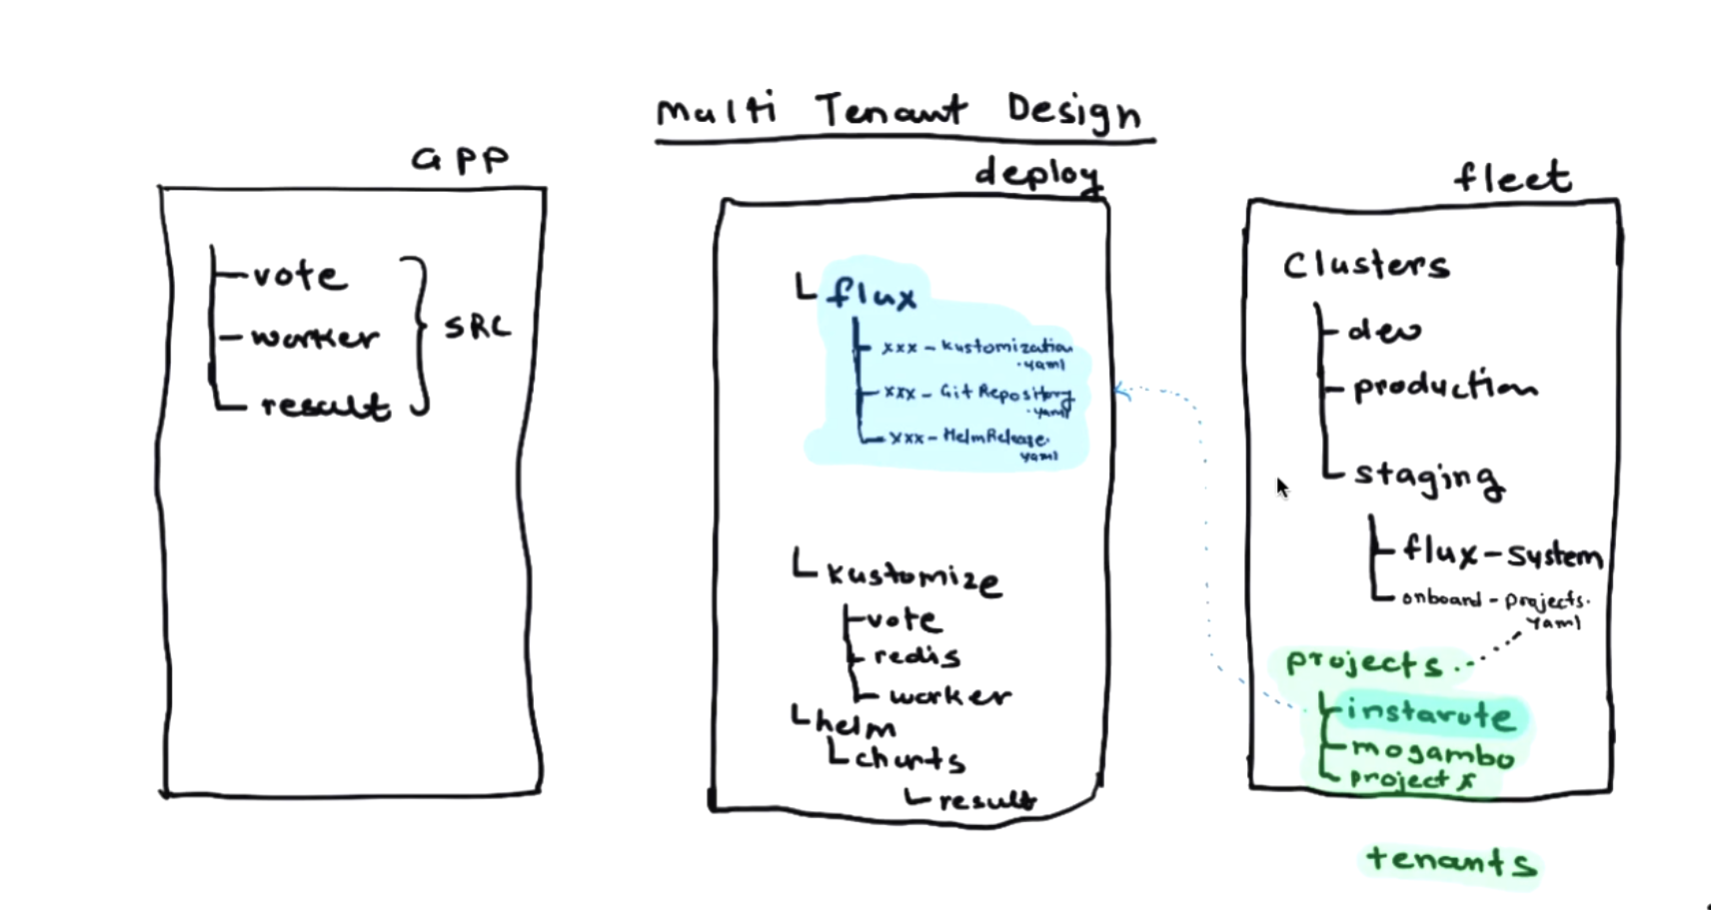 Multi Tenant Design
app
vote
worker
result
SRC
deploy
flux
xxx - Kustomization
.yaml
xxx - Git Repository
.yaml
xxx - HelmRelease.
yaml
Kustomize
vote
redis
worker
helm
charts
result
fleet
Clusters
dev
production
staging
flux-system
onboard - projects.
yaml
projects
instavote
mogambo
project x
tenants